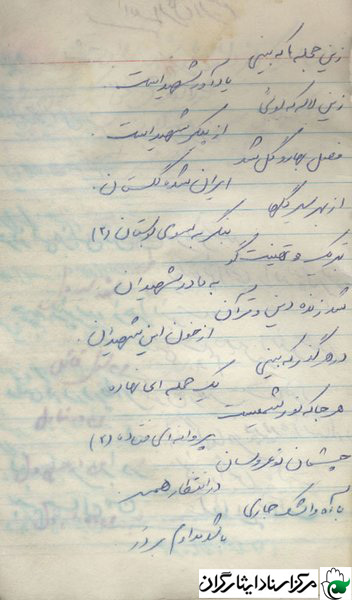 زین حجله ها که بینی
یادآور شهید است
زین لاله که
از پیکر شهید است
فصل بهار و گل شد
ایران شده گلستان
از بهر سیر گلها
بنگر به سوی بستان (۲)
تبریک و تهنیت گو
به مادر شهیدان
شد زنده دین و قرآن
از خون این شهیدان
در هر گذر که بینی
یک حجله ای نهاده
هر جا که نور شمعست
پروانه ای فتاده (۲)
چشمان نو عروسان
در انتظار همسر
با آه و اشک جاری
گوید
مرکز اسناد ایثارگران